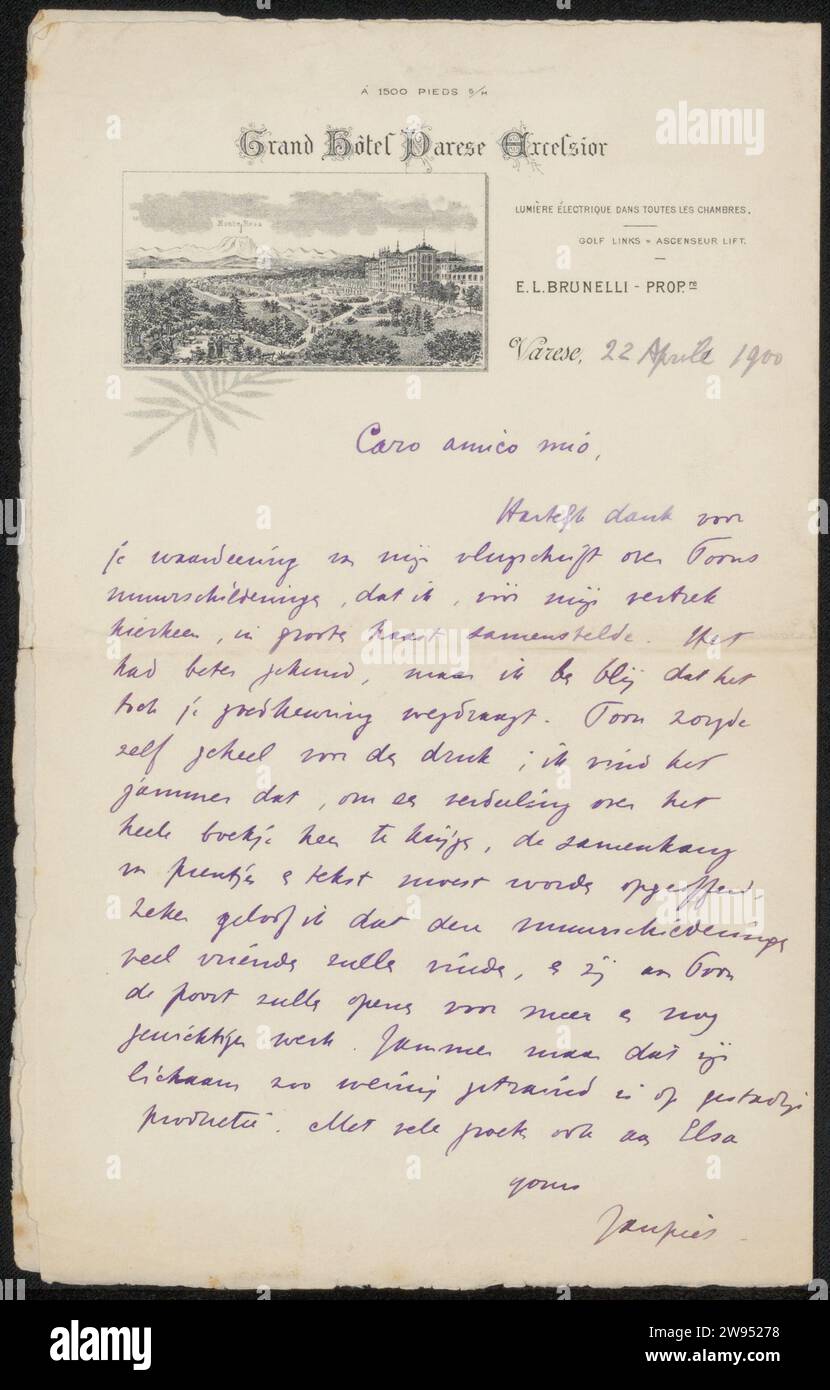 À 1500 PIEDS S/M
Grand Hôtel Varese Excelsior
Monte Rosa
LUMIÈRE ÉLECTRIQUE DANS TOUTES LES CHAMBRES.
GOLF LINKS = ASCENSEUR LIFT.
E. L. BRUNELLI - PROP.re
Varese, 22 Aprile 1900
Caro amico mio,
dank voor
je waardeering van mijn vlugschrift over Toons
muurschilderingen, dat ik, vóór mijn vertrek
hierheen, in groote haast samenstelde. Het
had beter gekund, maar ik ben blij dat het
toch je goedkeuring wegdraagt. Toon zorgde
zelf geheel voor den druk; ik vind het
jammer dat, om een verdeeling over het
heele boekje heen te krijgen, de samenhang
van prentjes en tekst moest worden opgeofferd.
Zeker geloof ik dat deze muurschilderingen
veel vrienden zullen vinden, en zij aan Toon
de poort zullen openen voor meer en nog
gewichtiger werk. Jammer maar dat zijn
lichaam zoo weinig getraind is op gestadige
productie. Met vele groeten ook aan Elsa
yours
Janpiet.
alamy
alamy
Image ID: 2W95278
www.alamy.com